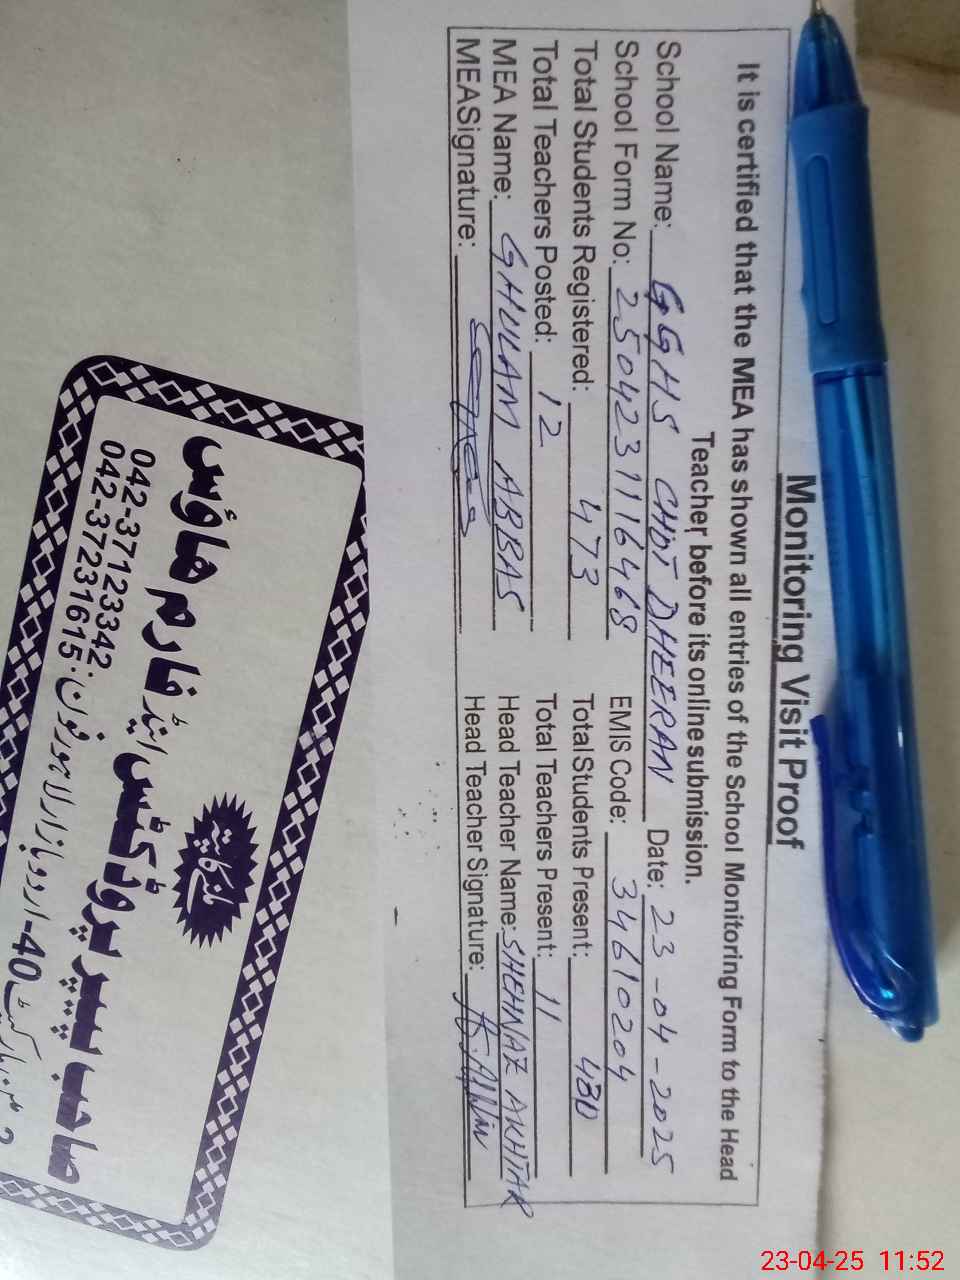 Monitoring Visit Proof
It is certified that the MEA has shown all entries of the School Monitoring Form to the Head
Teacher before its online submission.
School Name: GGHS CHDT DHEERAN Date: 23-04-2025
School Form No: 250423116468 EMIS Code: 34610204
Total Students Registered: 473 Total Students Present: 480
Total Teachers Posted: 12 Total Teachers Present: 11
MEA Name: GHULAM ABBAS Head Teacher Name: SHEHNAZ AKHTAR
MEASignature: Head Teacher Signature:
صاحب پیپر پروڈکٹس اینڈ فارم ہاؤس
40-اردو بازار لاہور فون:
042-37123342
042-37231615
23-04-25 11:52